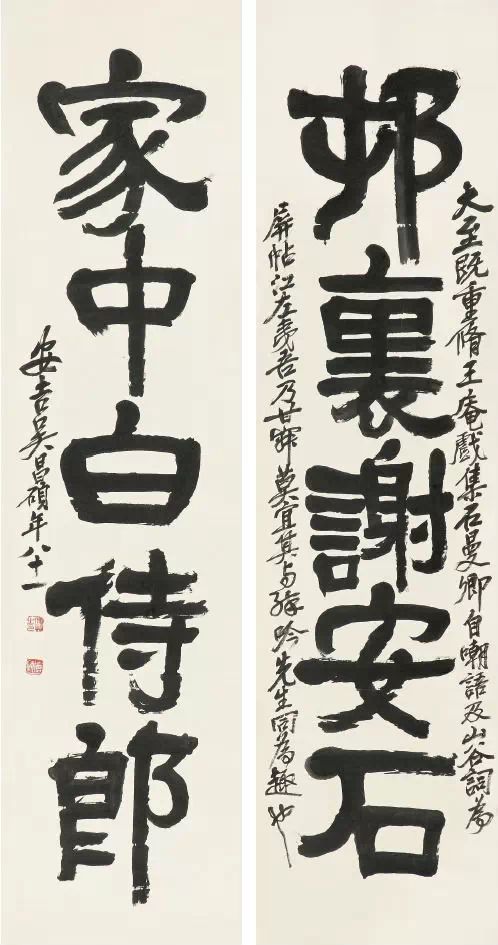 邨裏謝安石
大至既重脩王庵戲集石曼卿自嘲語及山谷詞為
屏帖江左夷吾乃甘
莫宜其与
吟先生同為趣也
家中白侍郎
安吉吳昌碩年八十一